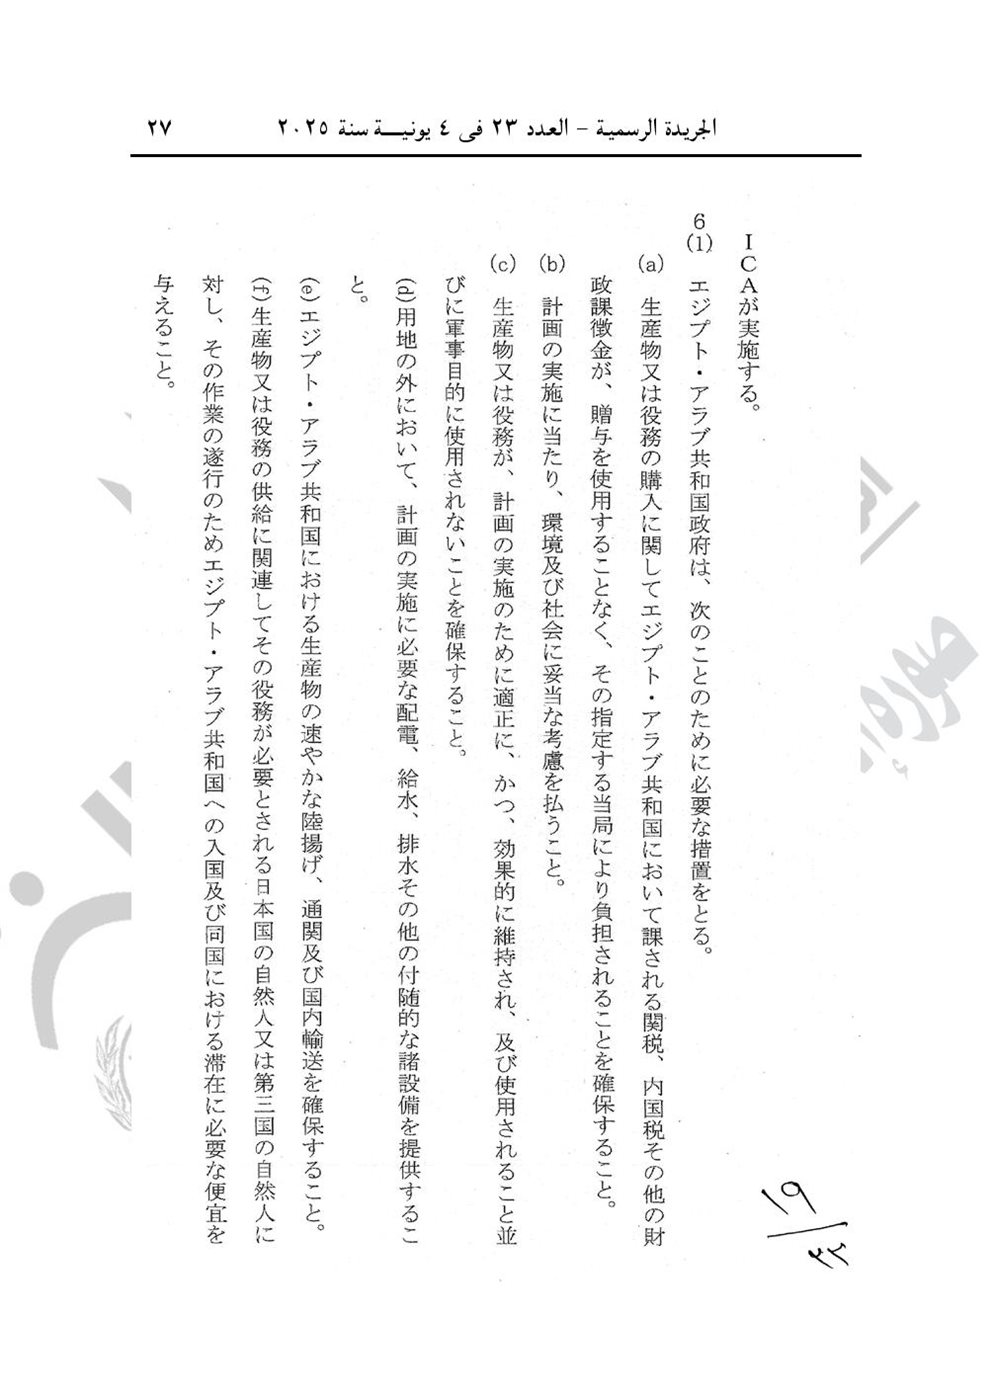 الجريدة الرسمية – العدد ٢٣ فى ٤ يونيــة سنة ٢٠٢٥ ٢٧
ICAが実施する。
6(1) エジプト・アラブ共和国政府は、次のことのために必要な措置をとる。
(a) 生産物又は役務の購入に関してエジプト・アラブ共和国において課される関税、内国税その他の財
政課徴金が、贈与を使用することなく、その指定する当局により負担されることを確保すること。
(b) 計画の実施に当たり、環境及び社会に妥当な考慮を払うこと。
(c) 生産物又は役務が、計画の実施のために適正に、かつ、効果的に維持され、及び使用されること並
びに軍事目的に使用されないことを確保すること。
(d)用地の外において、計画の実施に必要な配電、給水、排水その他の付随的な諸設備を提供するこ
と。
(e)エジプト・アラブ共和国における生産物の速やかな陸揚げ、通関及び国内輸送を確保すること。
(f)生産物又は役務の供給に関連してその役務が必要とされる日本国の自然人又は第三国の自然人に
対し、その作業の遂行のためエジプト・アラブ共和国への入国及び同国における滞在に必要な便宜を
与えること。
صورة
١٩
٢٢